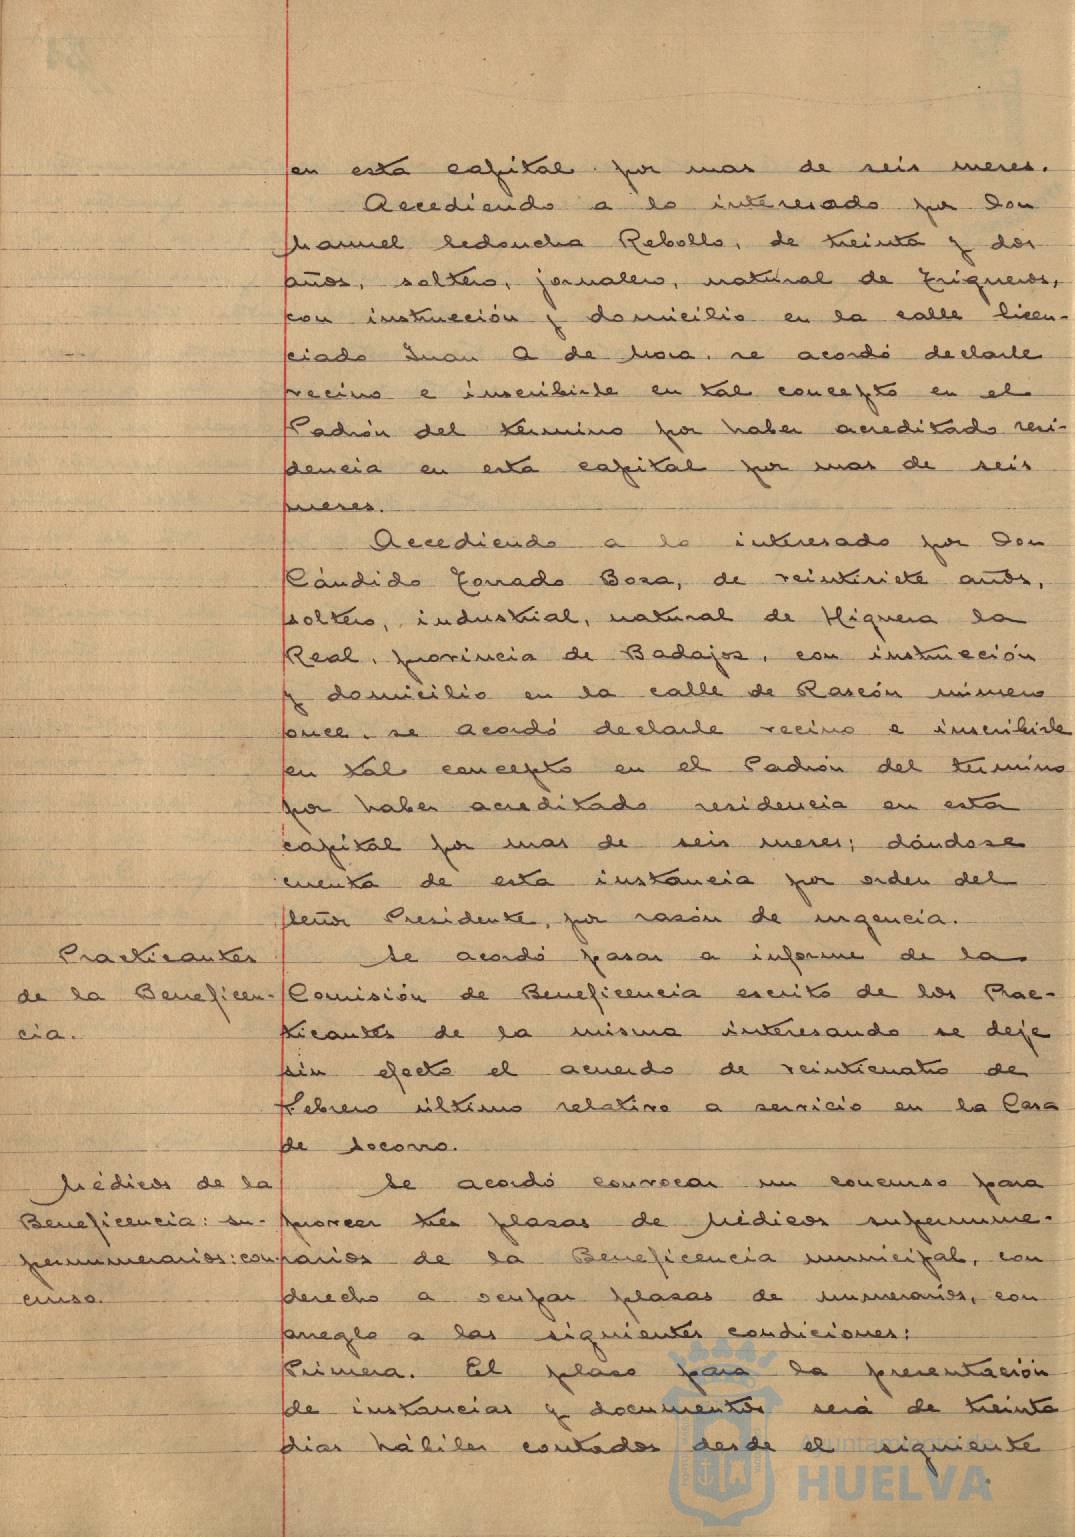 en esta capital por mas de seis meses.
Accediendo a lo interesado por Don
Manuel Ledoucha Rebollo, de treinta y dos
años, soltero, jornalero, natural de Trigueros,
con instrucción y domicilio en la calle Licen-
ciado Juan A de Mora, se acordó declarle
vecino e inscribirle en tal concepto en el
Padrón del término por haber acreditado resi-
dencia en esta capital por mas de seis
meses.
Accediendo a lo interesado por Don
Cándido Torrado Boza, de veintisiete años,
soltero, industrial, natural de Higuera la
Real, provincia de Badajoz, con instrucción
y domicilio en la calle de Rascón número
once, se acordó declarle vecino e inscribirle
en tal concepto en el Padrón del término
por haber acreditado residencia en esta
capital por mas de seis meses; dándose
cuenta de esta instancia por orden del
Señor Presidente, por razón de urgencia.
Practicantes
de la Beneficen-
cia.
Se acordó pasar a informe de la
Comisión de Beneficencia escrito de los Prac-
ticantes de la misma interesando se deje
sin efecto el acuerdo de veinticuatro de
Febrero último relativo a servicio en la Casa
de Socorro.
Médicos de la
Beneficencia: su-
pernumerarios: con-
curso.
Se acordó convocar un concurso para
proveer tres plazas de Médicos supernume-
rarios de la Beneficencia municipal, con
derecho a ocupar plazas de numerarios, con
arreglo a las siguientes condiciones:
Primera. El plazo para la presentación
de instancias y documentos será de treinta
dias hábiles contados desde el siguiente
Ayuntamiento de
HUELVA